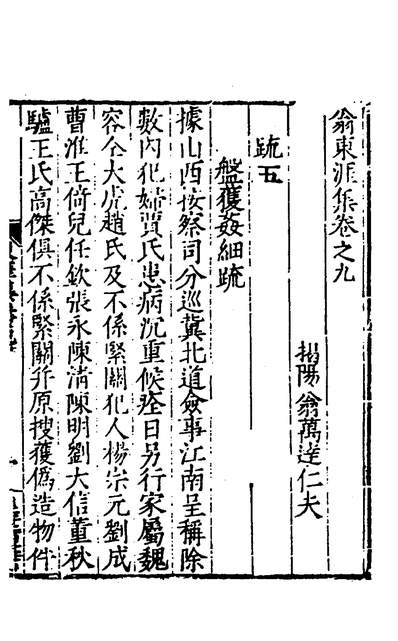 翁東涯集卷之九
揭陽翁萬逹仁夫
疏五
盤獲姦細疏
據山西按察司分巡冀北道僉事江南呈稱除
數內犯婦賈氏患病沉重候痊日另行家屬魏
容仝大虎趙氏及不係緊關犯人楊宗元劉成
曹淮王倚兒任欽張永陳清陳明劉大信董秋
驢王氏高傑俱不係緊關并原搜獲偽造物件